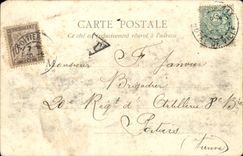 CARTE POSTALE
Ce côté est exclusivement réservé à l'adresse
Monsieur F. Janvier
Brigadier
20e Régt d'Artillerie 8e Bie
Poitiers
Vienne